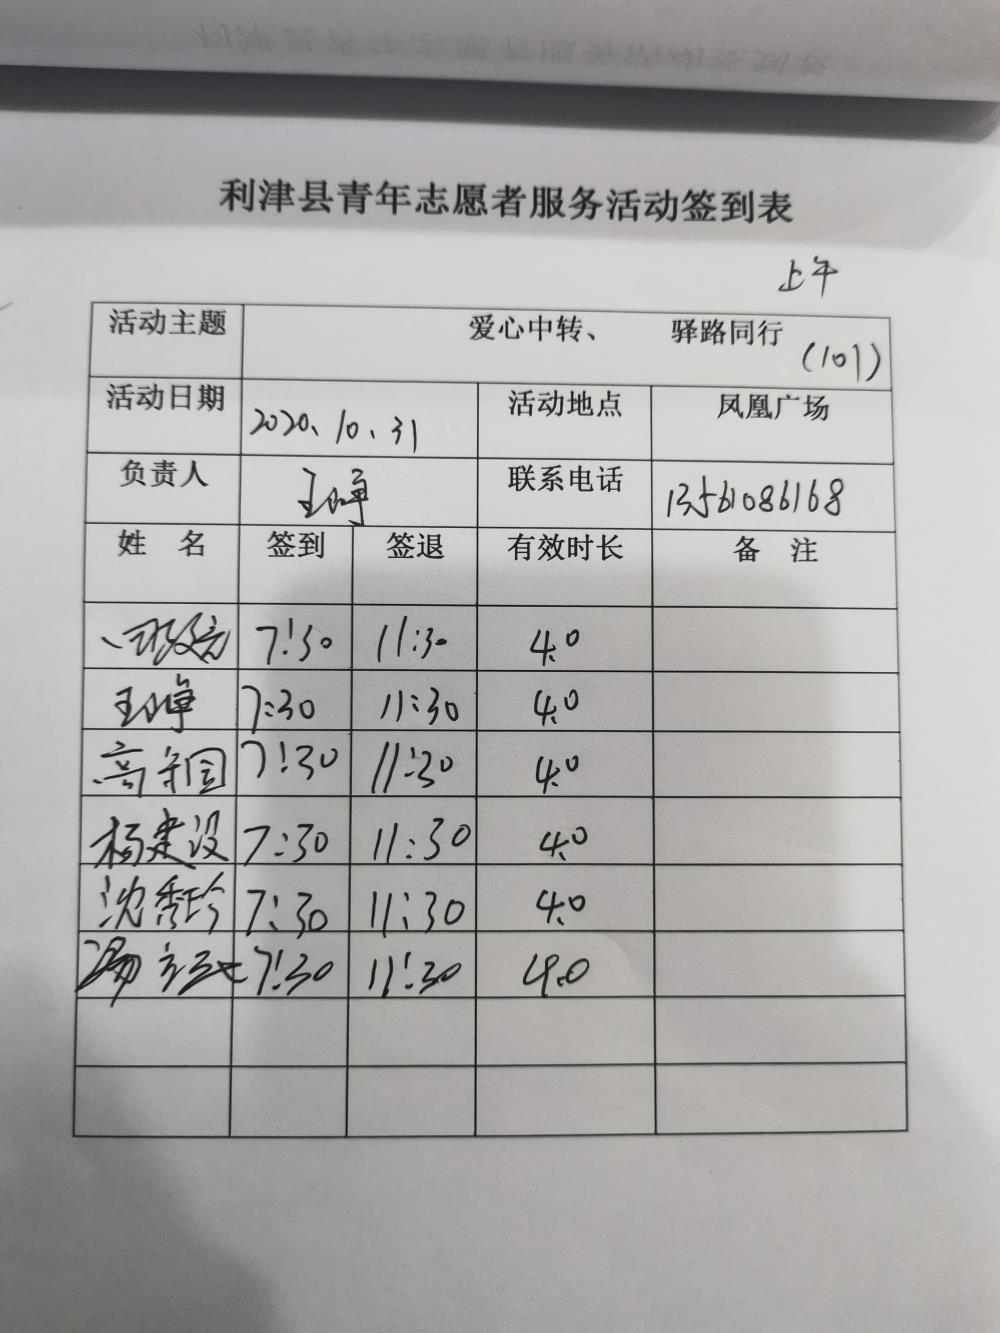 利津县青年志愿者服务活动签到表
上午
活动主题 爱心中转、 驿路同行 (101)
活动日期 2020、10、31 活动地点 凤凰广场
负责人 王峥 联系电话 13561086168
姓 名 签到 签退 有效时长 备 注
7:30 11:30 4.0
王峥 7:30 11:30 4.0
高守国 7:30 11:30 4.0
杨建设 7:30 11:30 4.0
沈秀珍 7:30 11:30 4.0
7:30 11:30 4.0